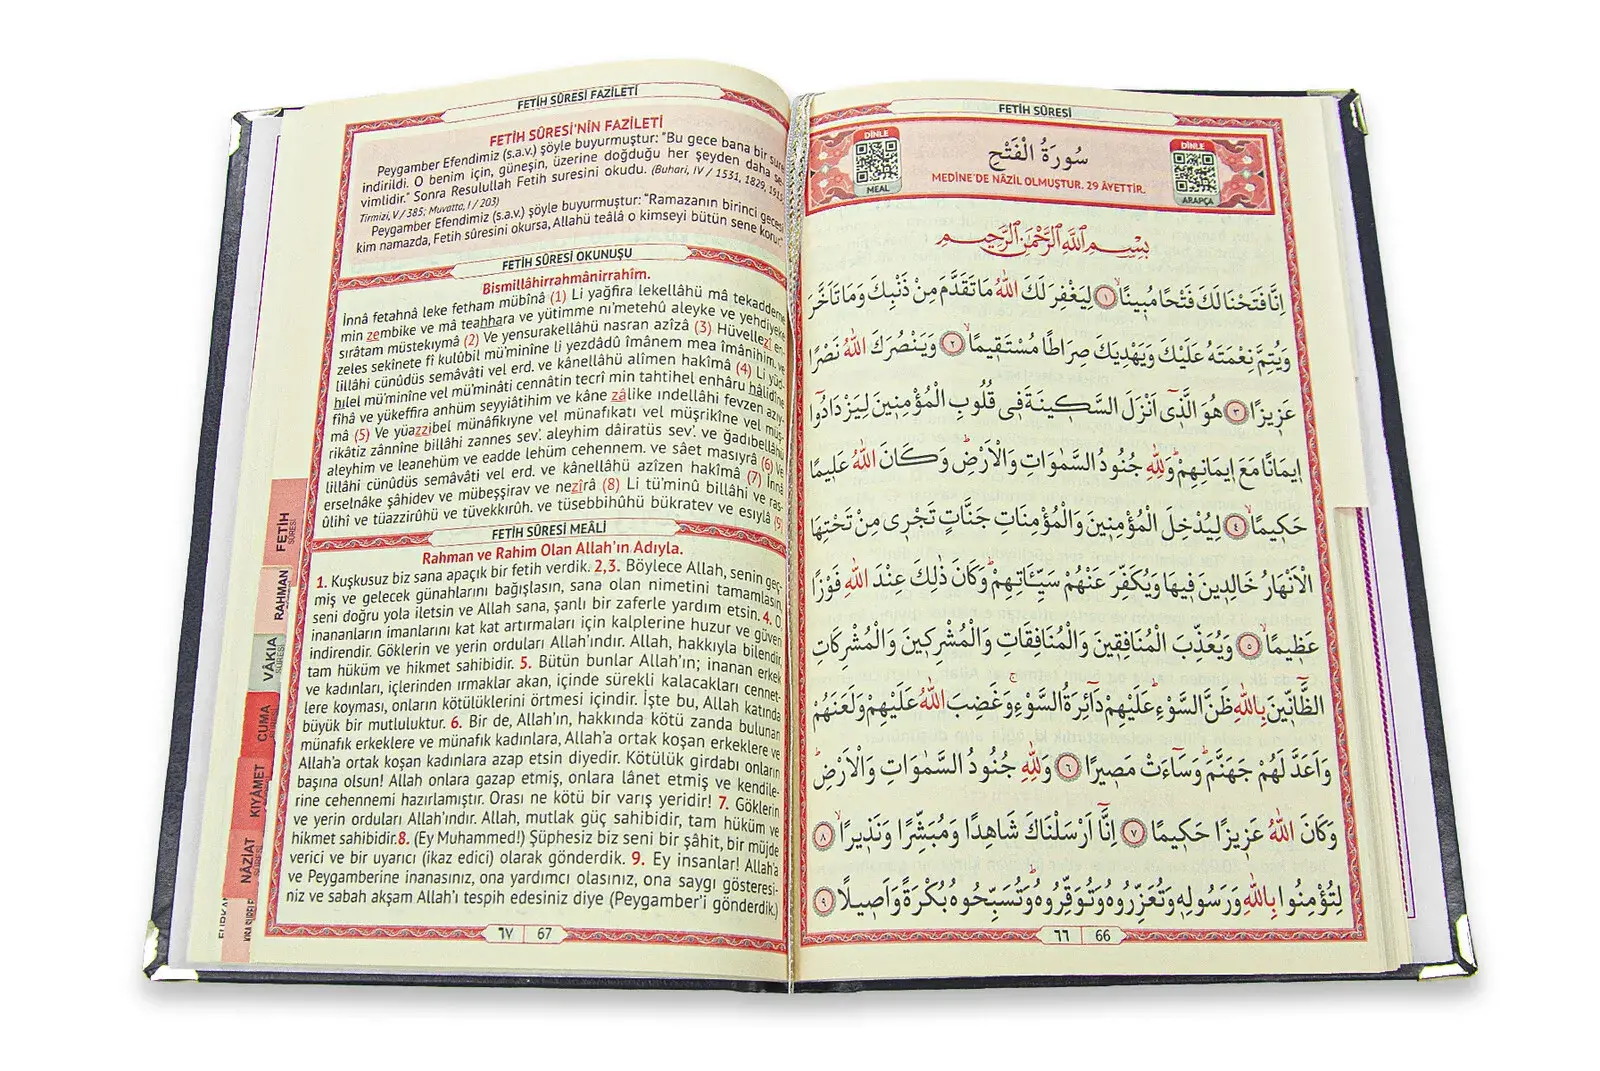 FETİH SÛRESİ
DİNLE
MEAL
سُورَةُ الْفَتْحِ
MEDİNE'DE NÂZİL OLMUŞTUR. 29 ÂYETTİR.
DİNLE
ARAPÇA
بِسْمِ اللّٰهِ الرَّحْمٰنِ الرَّحِيمِ
اِنَّا فَتَحْنَا لَكَ فَتْحًا مُبِينًاۙ ﴿١﴾ لِيَغْفِرَ لَكَ اللّٰهُ مَا تَقَدَّمَ مِنْ ذَنْبِكَ وَمَا تَاَخَّرَ
وَيُتِمَّ نِعْمَتَهُ عَلَيْكَ وَيَهْدِيَكَ صِرَاطًا مُسْتَقِيمًاۙ ﴿٢﴾ وَيَنْصُرَكَ اللّٰهُ نَصْرًا
عَزِيزًا ﴿٣﴾ هُوَ الَّذِٓي اَنْزَلَ السَّكِينَةَ فِي قُلُوبِ الْمُؤْمِنِينَ لِيَزْدَادُٓوا
اِيمَانًا مَعَ اِيمَانِهِمْۜ وَلِلّٰهِ جُنُودُ السَّمٰوَاتِ وَالْاَرْضِۜ وَكَانَ اللّٰهُ عَلِيمًا
حَكِيمًاۙ ﴿٤﴾ لِيُدْخِلَ الْمُؤْمِنِينَ وَالْمُؤْمِنَاتِ جَنَّاتٍ تَجْرِي مِنْ تَحْتِهَا
الْاَنْهَارُ خَالِدِينَ فِيهَا وَيُكَفِّرَ عَنْهُمْ سَيِّـَٔاتِهِمْۜ وَكَانَ ذٰلِكَ عِنْدَ اللّٰهِ فَوْزًا
عَظِيمًاۙ ﴿٥﴾ وَيُعَذِّبَ الْمُنَافِقِينَ وَالْمُنَافِقَاتِ وَالْمُشْرِكِينَ وَالْمُشْرِكَاتِ
الظَّٓانِّينَ بِاللّٰهِ ظَنَّ السَّوْءِۜ عَلَيْهِمْ دَٓائِرَةُ السَّوْءِۚ وَغَضِبَ اللّٰهُ عَلَيْهِمْ وَلَعَنَهُمْ
وَاَعَدَّ لَهُمْ جَهَنَّمَۜ وَسَٓاءَتْ مَصِيرًا ﴿٦﴾ وَلِلّٰهِ جُنُودُ السَّمٰوَاتِ وَالْاَرْضِۜ
وَكَانَ اللّٰهُ عَزِيزًا حَكِيمًا ﴿٧﴾ اِنَّٓا اَرْسَلْنَاكَ شَاهِدًا وَمُبَشِّرًا وَنَذِيرًاۙ ﴿٨﴾
لِتُؤْمِنُوا بِاللّٰهِ وَرَسُولِهِ وَتُعَزِّرُوهُ وَتُوَقِّرُوهُۜ وَتُسَبِّحُوهُ بُكْرَةً وَاَصِيلًا ﴿٩﴾
٦٦ 66
FETİH SÛRESİ FAZİLETİ
FETİH SÛRESİ'NİN FAZİLETİ
Peygamber Efendimiz (s.a.v.) şöyle buyurmuştur: "Bu gece bana bir sure
indirildi. O benim için, güneşin, üzerine doğduğu her şeyden daha se-
vimlidir." Sonra Resulullah Fetih suresini okudu. (Buhari, IV / 1531, 1829,
Tirmizi, V / 385; Muvatta, I / 203)
Peygamber Efendimiz (s.a.v.) şöyle buyurmuştur: "Ramazanın birinci gecesi
kim namazda, Fetih sûresini okursa, Allahü teâlâ o kimseyi bütün sene korur."
FETİH SÛRESİ OKUNUŞU
Bismillâhirrahmânirrahîm.
İnnâ fetahnâ leke fetham mübînâ (1) Li yağfira lekellâhü mâ tekaddeme
min zembike ve mâ teahhara ve yütimme ni'metehû aleyke ve yehdiyeke
sırâtam müstekıymâ (2) Ve yensurakellâhü nasran azîzâ (3) Hüvellezî en-
zeles sekînete fî kulûbil mü'minîne li yezdâdû îmânem mea îmânihim. ve
lillâhi cünûdüs semâvâti vel erd. ve kânellâhü alîmen hakîmâ (4) Li yüd-
hılel mü'minîne vel mü'minâti cennâtin tecrî min tahtihel enhâru hâlidîne
fîhâ ve yükeffira anhüm seyyiâtihim ve kâne zâlike ındellâhi fevzen azıy-
mâ (5) Ve yüazzibel münâfikıyne vel münafıkati vel müşrikîne vel müş-
rikâtiz zânnîne billâhi zannes sev'. aleyhim dâiratüs sev'. ve ğadıbellâhü
aleyhim ve leanehüm ve eadde lehüm cehennem. ve sâet masıyrâ (6) Ve
lillâhi cünûdüs semâvâti vel erd. ve kânellâhü azîzen hakîmâ (7) İnnâ
erselnâke şâhidev ve mübeşşirav ve nezîrâ (8) Li tü'minû billâhi ve ras-
ûlihi ve tüazzirûhü ve tüvekkırûh. ve tüsebbihûhü bükratev ve esıylâ (9)
FETİH SÛRESİ MEÂLİ
Rahman ve Rahim Olan Allah'ın Adıyla.
1. Kuşkusuz biz sana apaçık bir fetih verdik. 2,3. Böylece Allah, senin geç-
miş ve gelecek günahlarını bağışlasın, sana olan nimetini tamamlasın,
seni doğru yola iletsin ve Allah sana, şanlı bir zaferle yardım etsin. 4. O,
inananların imanlarını kat kat artırmaları için kalplerine huzur ve güven
indirendir. Göklerin ve yerin orduları Allah'ındır. Allah, hakkıyla bilendir,
tam hüküm ve hikmet sahibidir. 5. Bütün bunlar Allah'ın; inanan erkek
ve kadınları, içlerinden ırmaklar akan, içinde sürekli kalacakları cennet-
lere koyması, onların kötülüklerini örtmesi içindir. İşte bu, Allah katında
büyük bir mutluluktur. 6. Bir de, Allah'ın, hakkında kötü zanda bulunan
münafık erkeklere ve münafık kadınlara, Allah'a ortak koşan erkeklere ve
Allah'a ortak koşan kadınlara azap etsin diyedir. Kötülük girdabı onların
başına olsun! Allah onlara gazap etmiş, onlara lânet etmiş ve kendile-
rine cehennemi hazırlamıştır. Orası ne kötü bir varış yeridir! 7. Göklerin
ve yerin orduları Allah'ındır. Allah, mutlak güç sahibidir, tam hüküm ve
hikmet sahibidir.8. (Ey Muhammed!) Şüphesiz biz seni bir şâhit, bir müjde
verici ve bir uyarıcı (ikaz edici) olarak gönderdik. 9. Ey insanlar! Allah'a
ve Peygamberine inanasınız, ona yardımcı olasınız, ona saygı gösteresi-
niz ve sabah akşam Allah'ı tespih edesiniz diye (Peygamber'i gönderdik.)
٦٧ 67
FETİH
SÛRESİ
RAHMAN
VÂKIA
SÛRESİ
CUMA
KIYÂMET
NÂZİAT
SÛRESİ